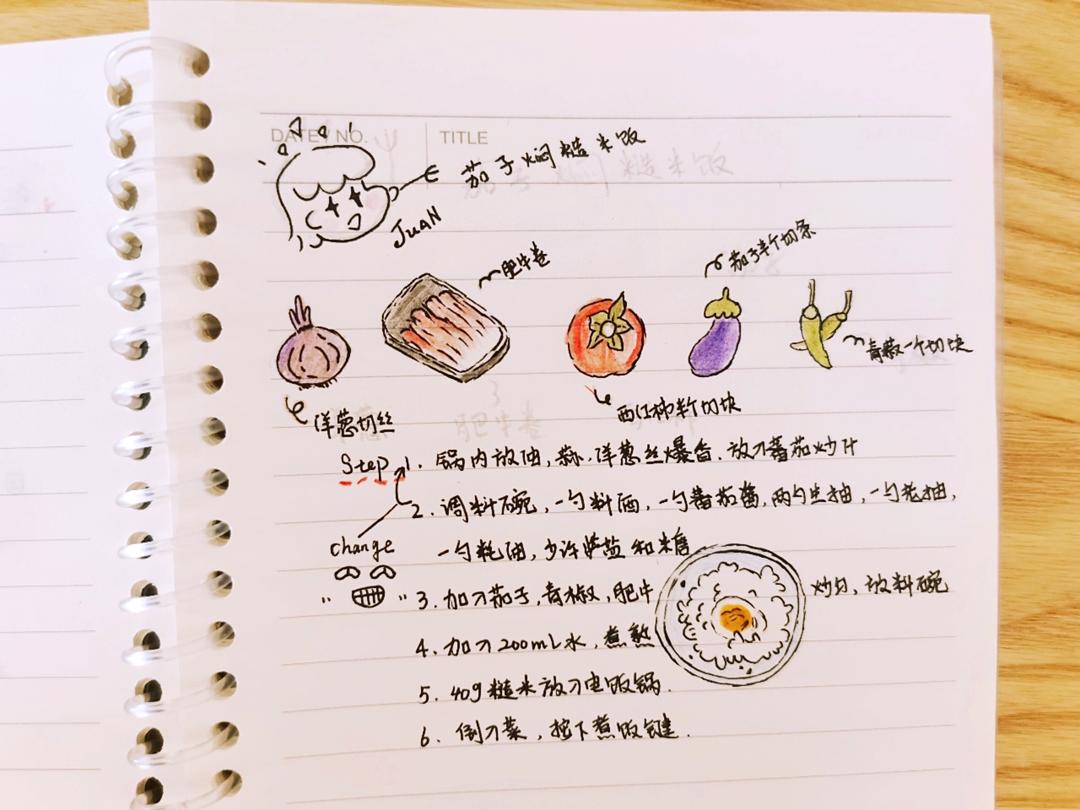 DATE / NO.
TITLE
茄子焖糙米饭
JUAN
肥牛卷
茄子半个切条
青椒一个切块
洋葱切丝
西红柿半个切块
Step 1. 锅内放油,蒜,洋葱丝爆香.放入蕃茄炒汁
2. 调料碗,一勺料酒,一勺蕃茄酱,两勺生抽,一勺老抽,
change
一勺耗油,少许盐和糖
" " 3. 加入茄子,青椒,肥牛 炒匀,放料碗
4. 加入200mL水,煮熟
5. 40g糙米放入电饭锅.
6. 倒入菜,按下煮饭键.